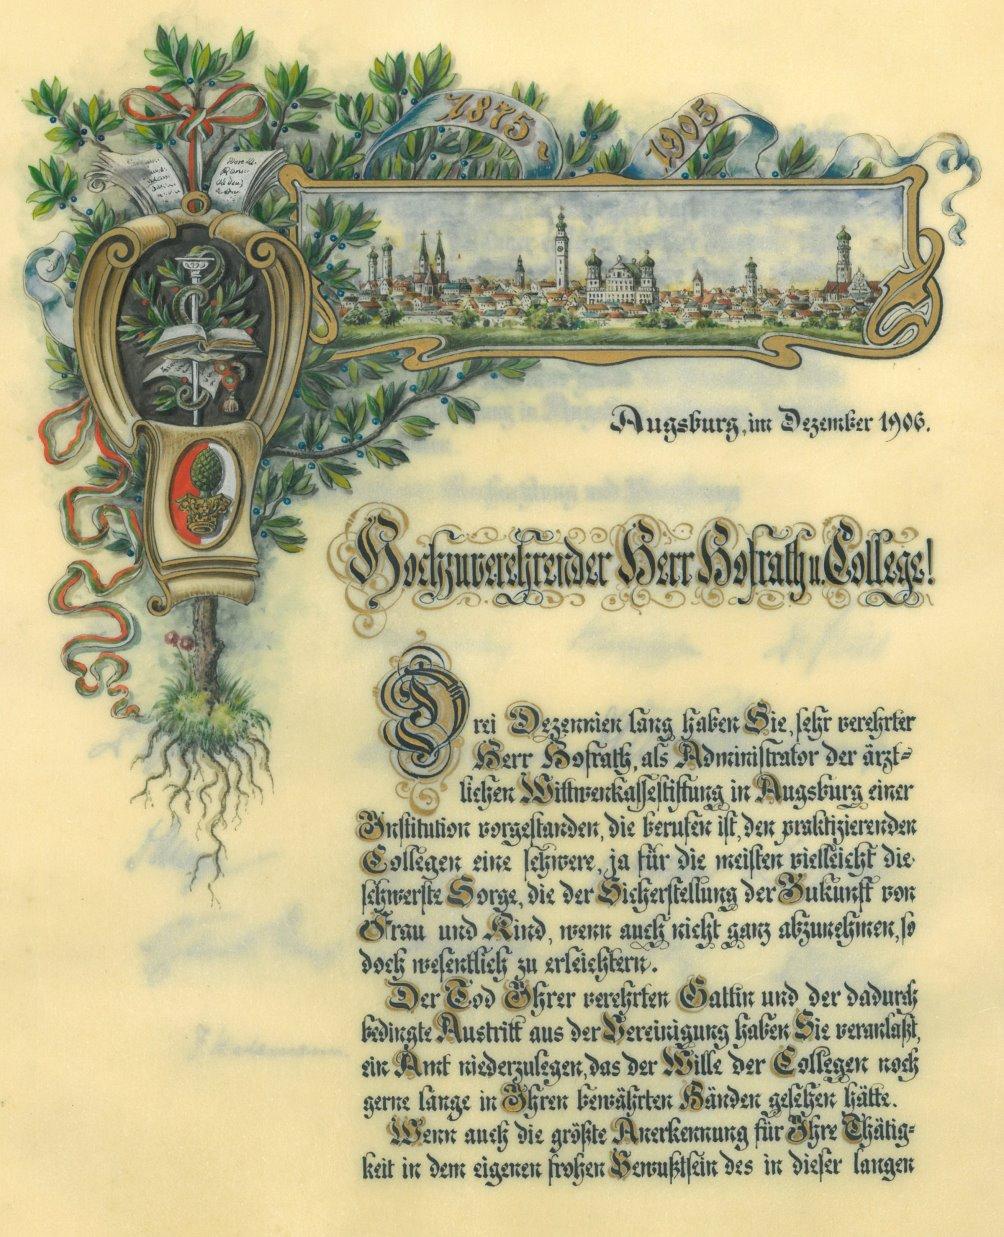 1875-
1905
Augsburg, im Dezember 1906.
Hochzuverehrender Herr Hofrath u. College!
Drei Dezennien lang haben Sie, sehr verehrter
Herr Hofrath, als Administrator der ärzt-
lichen Wittwenkassestiftung in Augsburg einer
Institution vorgestanden, die berufen ist, den praktizierenden
Collegen eine schwere, ja für die meisten vielleicht die
schwerste Sorge, die der Sicherstellung der Zukunft von
Frau und Kind, wenn auch nicht ganz abzunehmen, so
doch wesentlich zu erleichtern.
Der Tod Ihrer verehrten Gattin und der dadurch
bedingte Austritt aus der Vereinigung haben Sie veranlaßt,
ein Amt niederzulegen, das der Wille der Collegen noch
gerne lange in Ihren bewährten Händen gesehen hätte.
Wenn auch die größte Anerkennung für Ihre Thätig-
keit in dem eigenen frohen Bewußtsein des in dieser langen